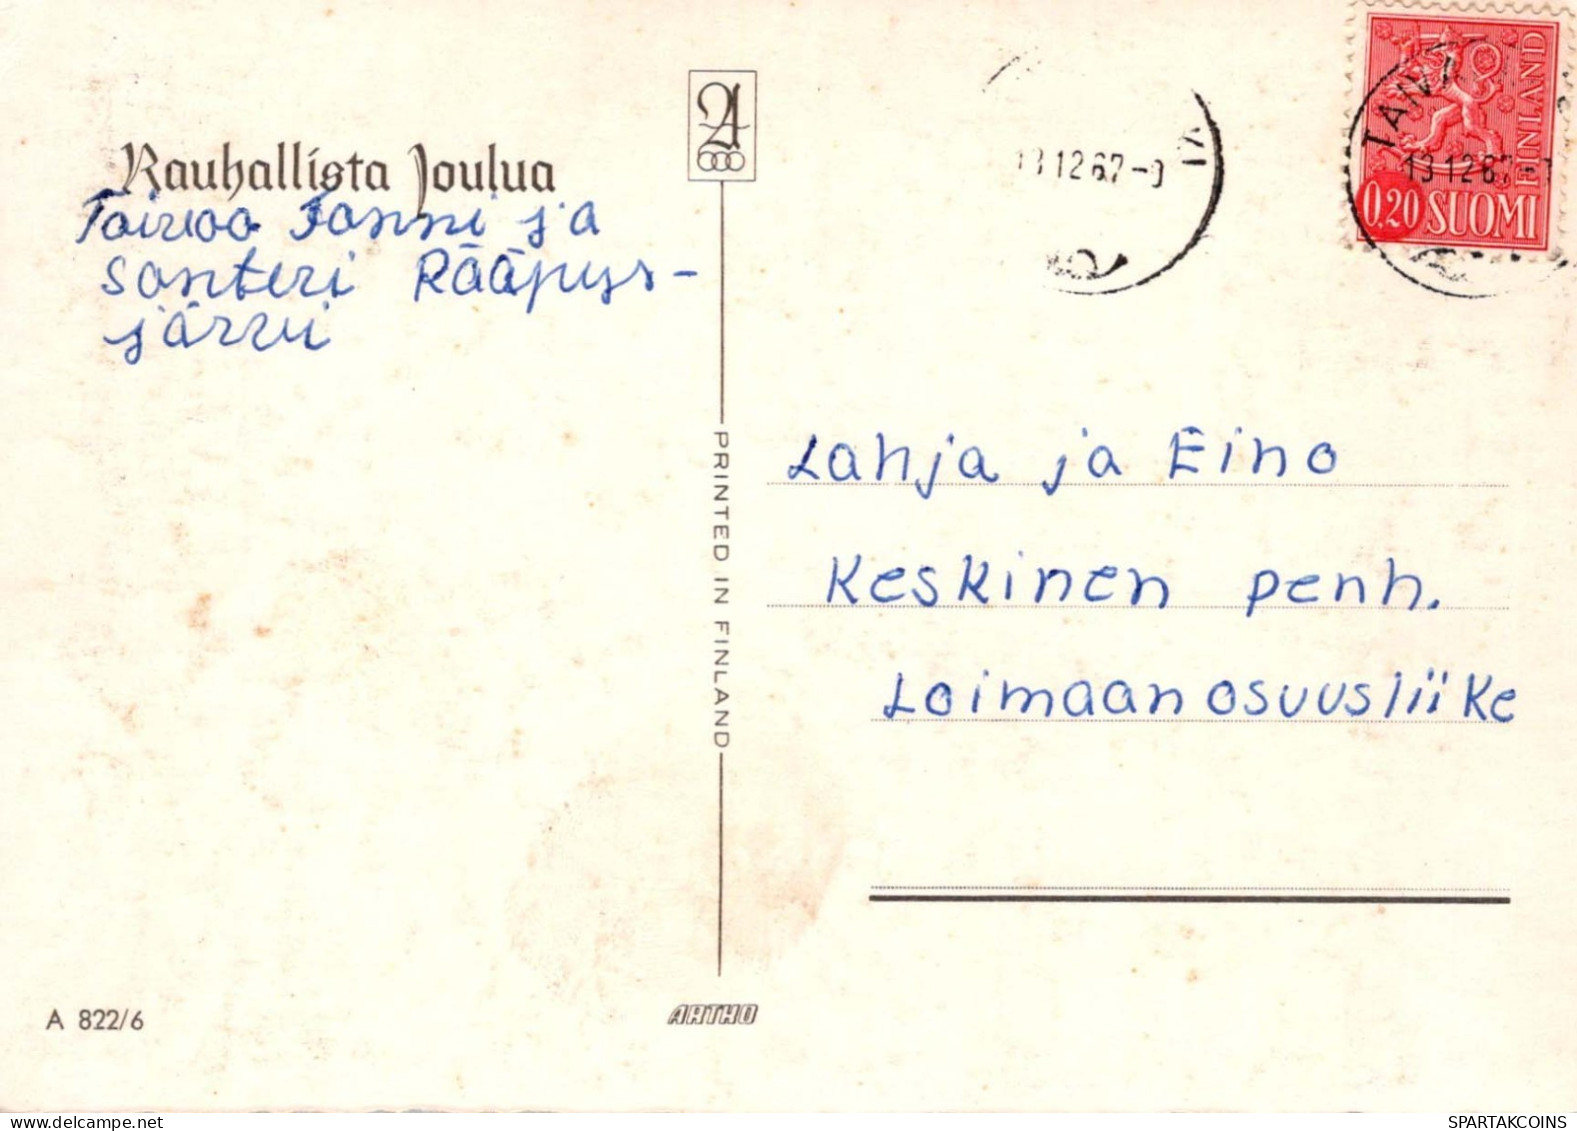 Rauhallista Joulua
Toivoo Fanni ja
Santeri Rääpys-
järvi
PRINTED IN FINLAND
A 822/6
ARTHO
13 12 67-9
TAIV
13 12 67-
FINLAND
0.20 SUOMI
Lahja ja Eino
Keskinen penh.
Loimaan osuusliike
SPARTAKCOINS